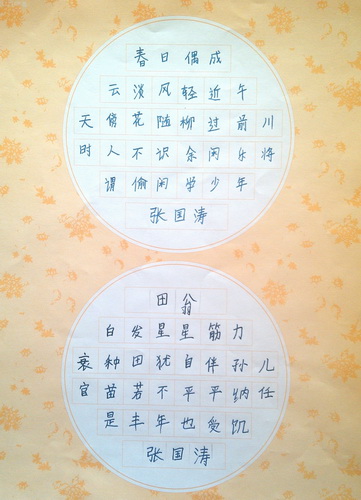 春日偶成
云淡风轻近午
天傍花随柳过前川
时人不识余闲乐将
谓偷闲学少年
张国涛
田翁
白发星星筋力
衰种田犹自伴孙儿
官苗若不平平纳任
是丰年也受饥
张国涛